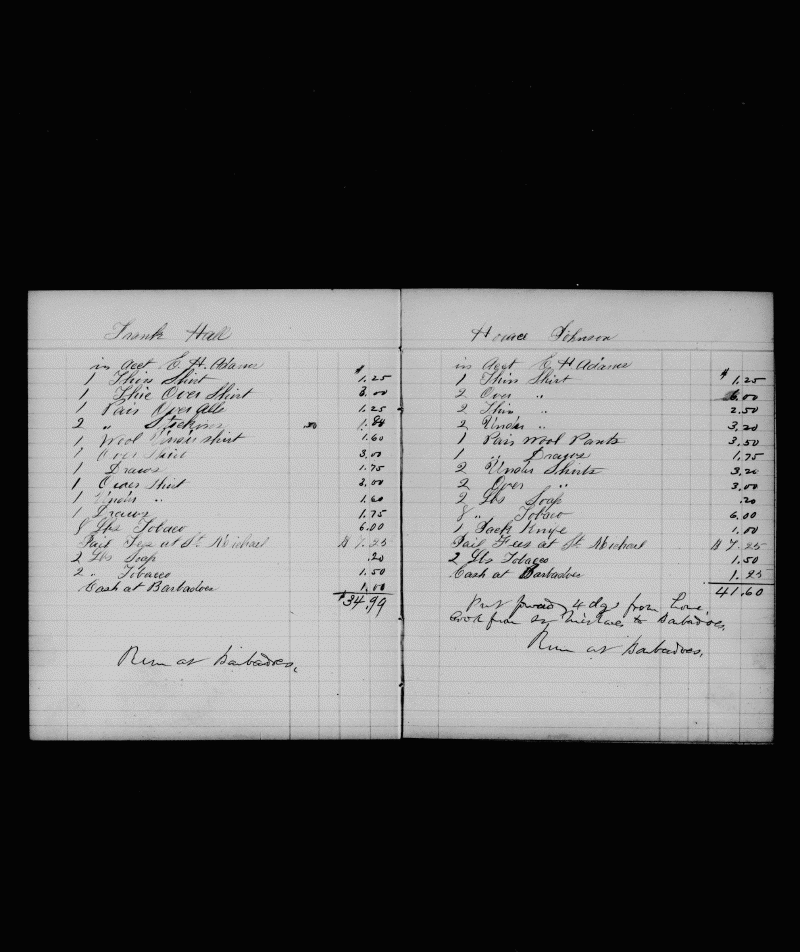 Frank Hall
in Acct E. H. Adams
1 Thin Shirt $ 1.25
1 Thic Over Shirt 3.00
1 Pair Over Alls 1.25
2 " Stockins .90 1.84
1 Wool Under shirt 1.60
1 Over Shirt 3.00
1 Draws 1.75
1 Over Shirt 3.00
1 Under " 1.60
1 Draws 1.75
8 Lbs Tobaco 6.00
Jail Fees at St. Michael $ 7.25
2 Lbs Soap .20
2 " Tobacco 1.50
Cash at Barbadoes 1.00
$34.99
Run at Barbadoes.
Horace Johnson
in Acct E H Adams
1 Thin Shirt $ 1.25
2 Over " 6.00
2 Thin " 2.50
2 Under " 3.20
1 Pair Wool Pants 3.50
1 " Draws 1.75
2 Under Shirts 3.20
2 Over " 3.00
2 Lbs Soap .20
8 " Tobaco 6.00
1 Jack Knife 1.00
Jail Fees at St. Michael $ 7.25
2 Lbs Tobacco 1.50
Cash at Barbadoes 1.25
41.60
Put 4 dys from
Cook from to Barbadoes.
Run at Barbadoes.